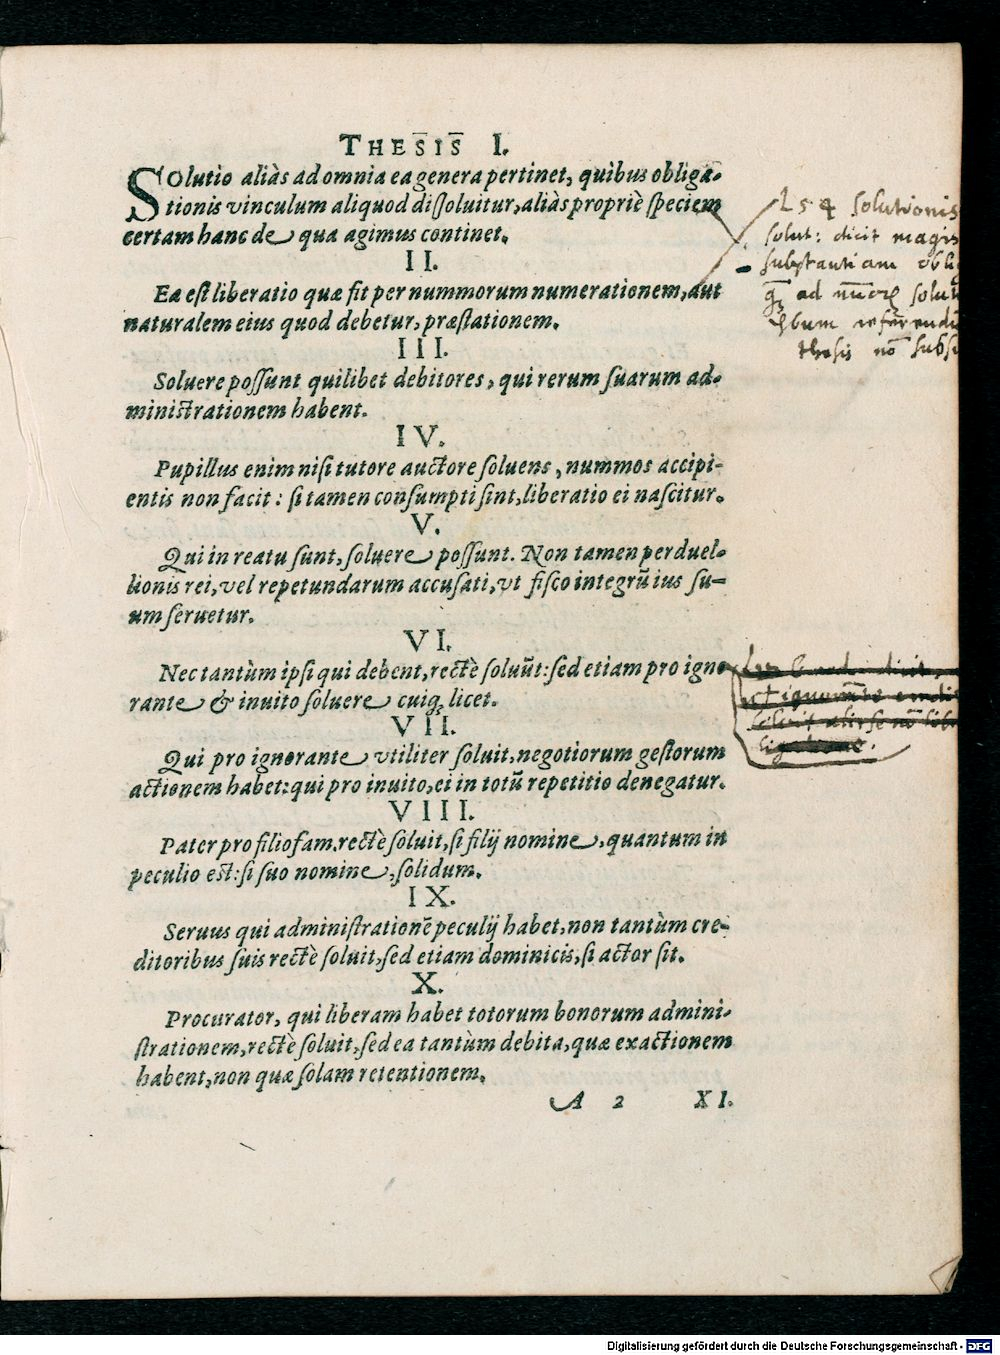 THESIS I.
Solutio aliàs ad omnia ea genera pertinet, quibus obliga-
tionis vinculum aliquod dissoluitur, aliàs propriè speciem
certam hanc de qua agimus continet.
II.
Ea est liberatio quæ fit per nummorum numerationem, aut
naturalem eius quod debetur, præstationem.
III.
Soluere possunt quilibet debitores, qui rerum suarum ad-
ministrationem habent.
IV.
Pupillus enim nisi tutore auctore soluens, nummos accipi-
entis non facit: si tamen consumpti sint, liberatio ei nascitur.
V.
Qui in reatu sunt, soluere possunt. Non tamen perduel-
lionis rei, vel repetundarum accusati, vt fisco integrũ ius su-
um seruetur.
VI.
Nec tantùm ipsi qui debent, rectè soluũt: sed etiam pro igno
rante & inuito soluere cuiq; licet.
VII.
Qui pro ignorante vtiliter soluit, negotiorum gestorum
actionem habet: qui pro inuito, ei in totũ repetitio denegatur.
VIII.
Pater pro filiofam. rectè soluit, si filij nomine, quantum in
peculio est: si suo nomine, solidum.
IX.
Seruus qui administrationẽ peculij habet, non tantùm cre-
ditoribus suis rectè soluit, sed etiam dominicis, si actor sit.
X.
Procurator, qui liberam habet totorum bonorum admini-
strationem, rectè soluit, sed ea tantùm debita, quæ exactionem
habent, non quæ solam retentionem.
A 2 XI.
l. 54 solutionis
solut: dicit magis
substantiam
ad solut
thesis nõ
Digitalisierung gefördert durch die Deutsche Forschungsgemeinschaft - DFG